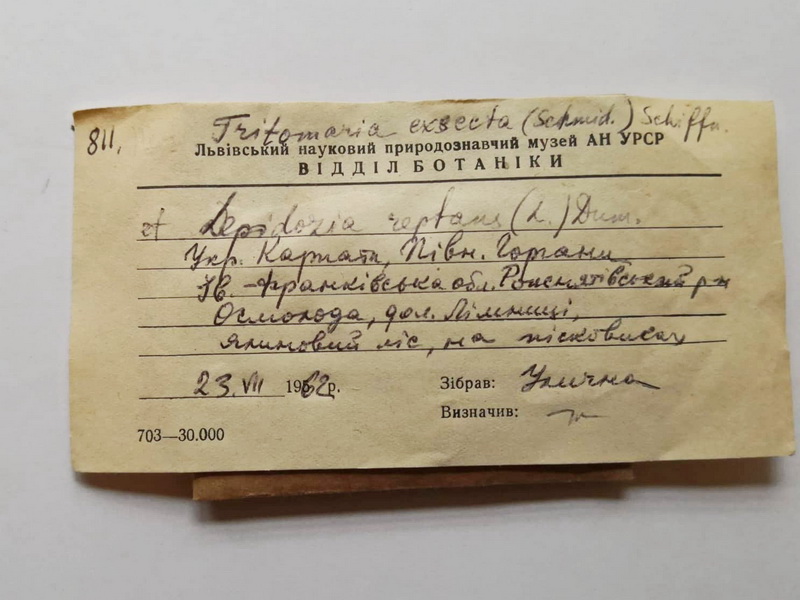 811.
Tritomaria exsecta (Schmid.) Schiffn.
Львівський науковий природознавчий музей АН УРСР
ВІДДІЛ БОТАНІКИ
et Lepidozia reptans (L.) Dum.
Укр. Карпати, Півн. Горгани
Ів.-Франківська обл. Рожнятівський р-н
Осмолода, дол. Лімниці,
ялиновий ліс, на пісковиках
23.VII 1962р.
Зібрав: Улична
Визначив:
703—30.000